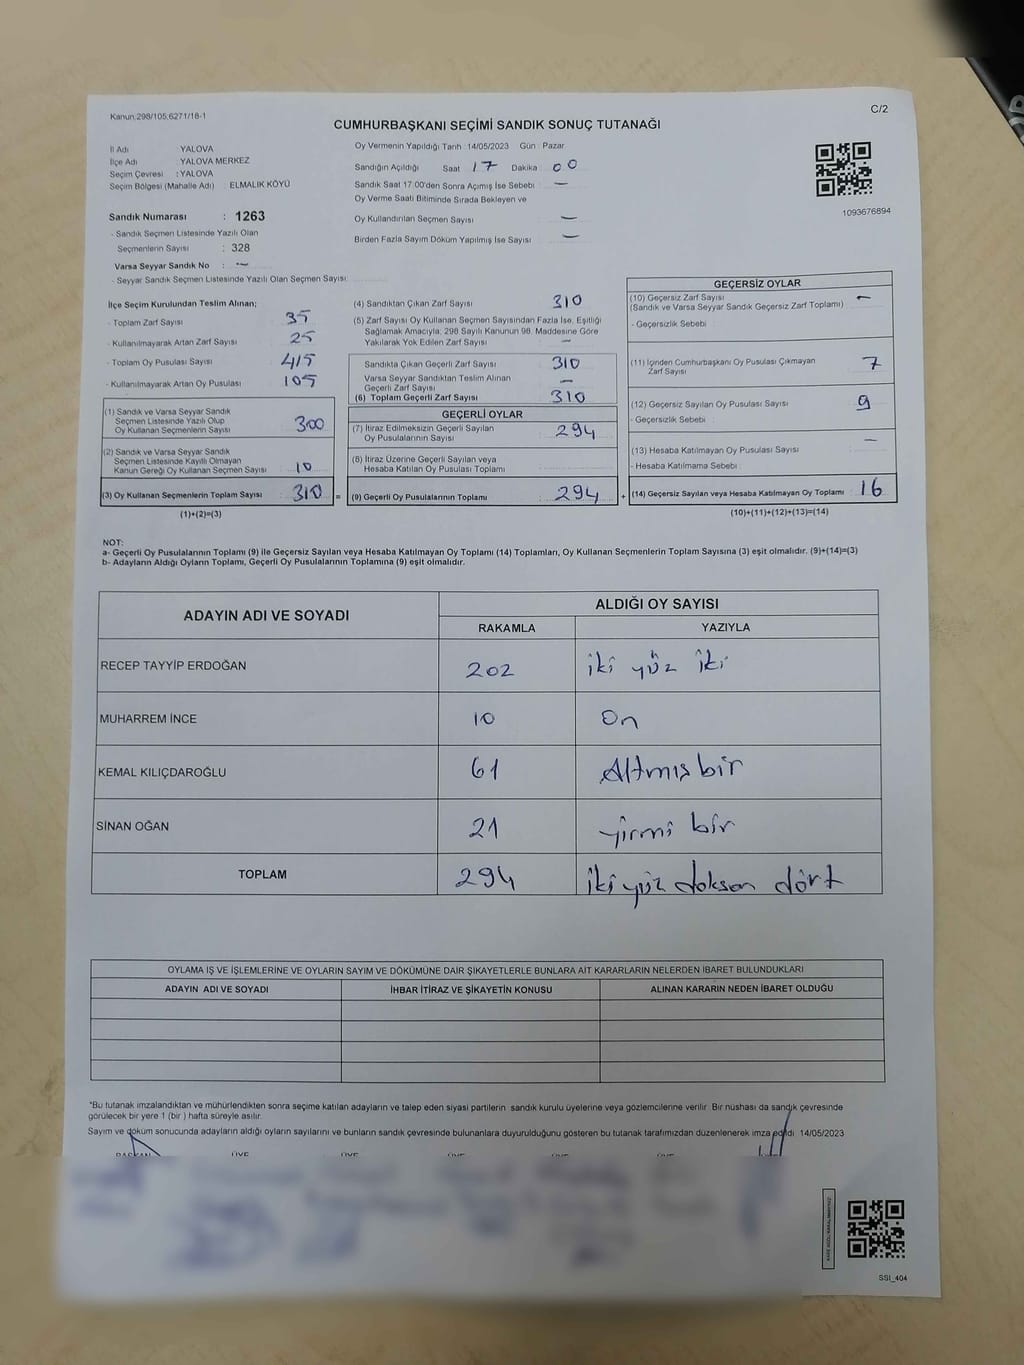 Kanun:298/105,6271/18-1
C/2
CUMHURBAŞKANI SEÇİMİ SANDIK SONUÇ TUTANAĞI
İl Adı : YALOVA
İlçe Adı : YALOVA MERKEZ
Seçim Çevresi : YALOVA
Seçim Bölgesi (Mahalle Adı) : ELMALIK KÖYÜ
Sandık Numarası : 1263
- Sandık Seçmen Listesinde Yazılı Olan
Seçmenlerin Sayısı : 328
Varsa Seyyar Sandık No : —
- Seyyar Sandık Seçmen Listesinde Yazılı Olan Seçmen Sayısı:
Oy Vermenin Yapıldığı Tarih :14/05/2023 Gün : Pazar
Sandığın Açıldığı Saat 17 Dakika : 00
Sandık Saat 17:00'den Sonra Açımış İse Sebebi : —
Oy Verme Saati Bitiminde Sırada Bekleyen ve
Oy Kullandırılan Seçmen Sayısı : —
Birden Fazla Sayım Döküm Yapılmış İse Sayısı : —
1093676894
İlçe Seçim Kurulundan Teslim Alınan;
- Toplam Zarf Sayısı : 35
- Kullanılmayarak Artan Zarf Sayısı : 25
- Toplam Oy Pusulası Sayısı : 415
- Kullanılmayarak Artan Oy Pusulası : 105
(1) Sandık ve Varsa Seyyar Sandık
Seçmen Listesinde Yazılı Olup
Oy Kullanan Seçmenlerin Sayısı : 300
(2) Sandık ve Varsa Seyyar Sandık
Seçmen Listesinde Kayıtlı Olmayan
Kanun Gereği Oy Kullanan Seçmen Sayısı : 10
(3) Oy Kullanan Seçmenlerin Toplam Sayısı : 310 =
(1)+(2)=(3)
(4) Sandıktan Çıkan Zarf Sayısı : 310
(5) Zarf Sayısı Oy Kullanan Seçmen Sayısından Fazla İse, Eşitliği
Sağlamak Amacıyla, 298 Sayılı Kanunun 98. Maddesine Göre
Yakılarak Yok Edilen Zarf Sayısı : —
Sandıkta Çıkan Geçerli Zarf Sayısı : 310
Varsa Seyyar Sandıktan Teslim Alınan
Geçerli Zarf Sayısı : —
(6) Toplam Geçerli Zarf Sayısı : 310
GEÇERLİ OYLAR
(7) İtiraz Edilmeksizin Geçerli Sayılan
Oy Pusulalarının Sayısı : 294
(8) İtiraz Üzerine Geçerli Sayılan veya
Hesaba Katılan Oy Pusulası Toplamı :
(9) Geçerli Oy Pusulalarının Toplamı : 294 +
GEÇERSİZ OYLAR
(10) Geçersiz Zarf Sayısı : —
(Sandık ve Varsa Seyyar Sandık Geçersiz Zarf Toplamı)
- Geçersizlik Sebebi :
(11) İçinden Cumhurbaşkanı Oy Pusulası Çıkmayan
Zarf Sayısı : 7
(12) Geçersiz Sayılan Oy Pusulası Sayısı : 9
- Geçersizlik Sebebi :
(13) Hesaba Katılmayan Oy Pusulası Sayısı : —
- Hesaba Katılmama Sebebi :
(14) Geçersiz Sayılan veya Hesaba Katılmayan Oy Toplamı : 16
(10)+(11)+(12)+(13)=(14)
NOT:
a- Geçerli Oy Pusulalarının Toplamı (9) ile Geçersiz Sayılan veya Hesaba Katılmayan Oy Toplamı (14) Toplamları, Oy Kullanan Seçmenlerin Toplam Sayısına (3) eşit olmalıdır. (9)+(14)=(3)
b- Adayların Aldığı Oyların Toplamı, Geçerli Oy Pusulalarının Toplamına (9) eşit olmalıdır.
ADAYIN ADI VE SOYADI ALDIĞI OY SAYISI
RAKAMLA YAZIYLA
RECEP TAYYİP ERDOĞAN 202 iki yüz iki
MUHARREM İNCE 10 On
KEMAL KILIÇDAROĞLU 61 Altmış bir
SİNAN OĞAN 21 yirmi bir
TOPLAM 294 iki yüz doksan dört
OYLAMA İŞ VE İŞLEMLERİNE VE OYLARIN SAYIM VE DÖKÜMÜNE DAİR ŞİKAYETLERLE BUNLARA AİT KARARLARIN NELERDEN İBARET BULUNDUKLARI
ADAYIN ADI VE SOYADI İHBAR İTİRAZ VE ŞİKAYETİN KONUSU ALINAN KARARIN NEDEN İBARET OLDUĞU
*Bu tutanak imzalandıktan ve mühürlendikten sonra seçime katılan adayların ve talep eden siyasi partilerin sandık kurulu üyelerine veya gözlemcilerine verilir. Bir nüshası da sandık çevresinde
görülecek bir yere 1 (bir ) hafta süreyle asılır.
Sayım ve döküm sonucunda adayların aldığı oyların sayılarını ve bunların sandık çevresinde bulunanlara duyurulduğunu gösteren bu tutanak tarafımızdan düzenlenerek imza edildi 14/05/2023
BAŞKAN ÜYE ÜYE ÜYE ÜYE ÜYE
SSI_404